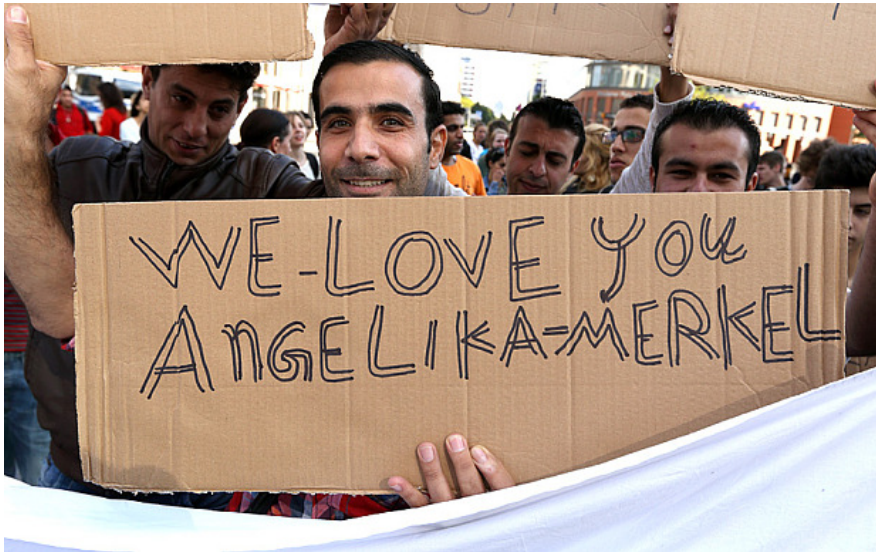 WE-LOVE YOU
ANGELIKA=MERKEL